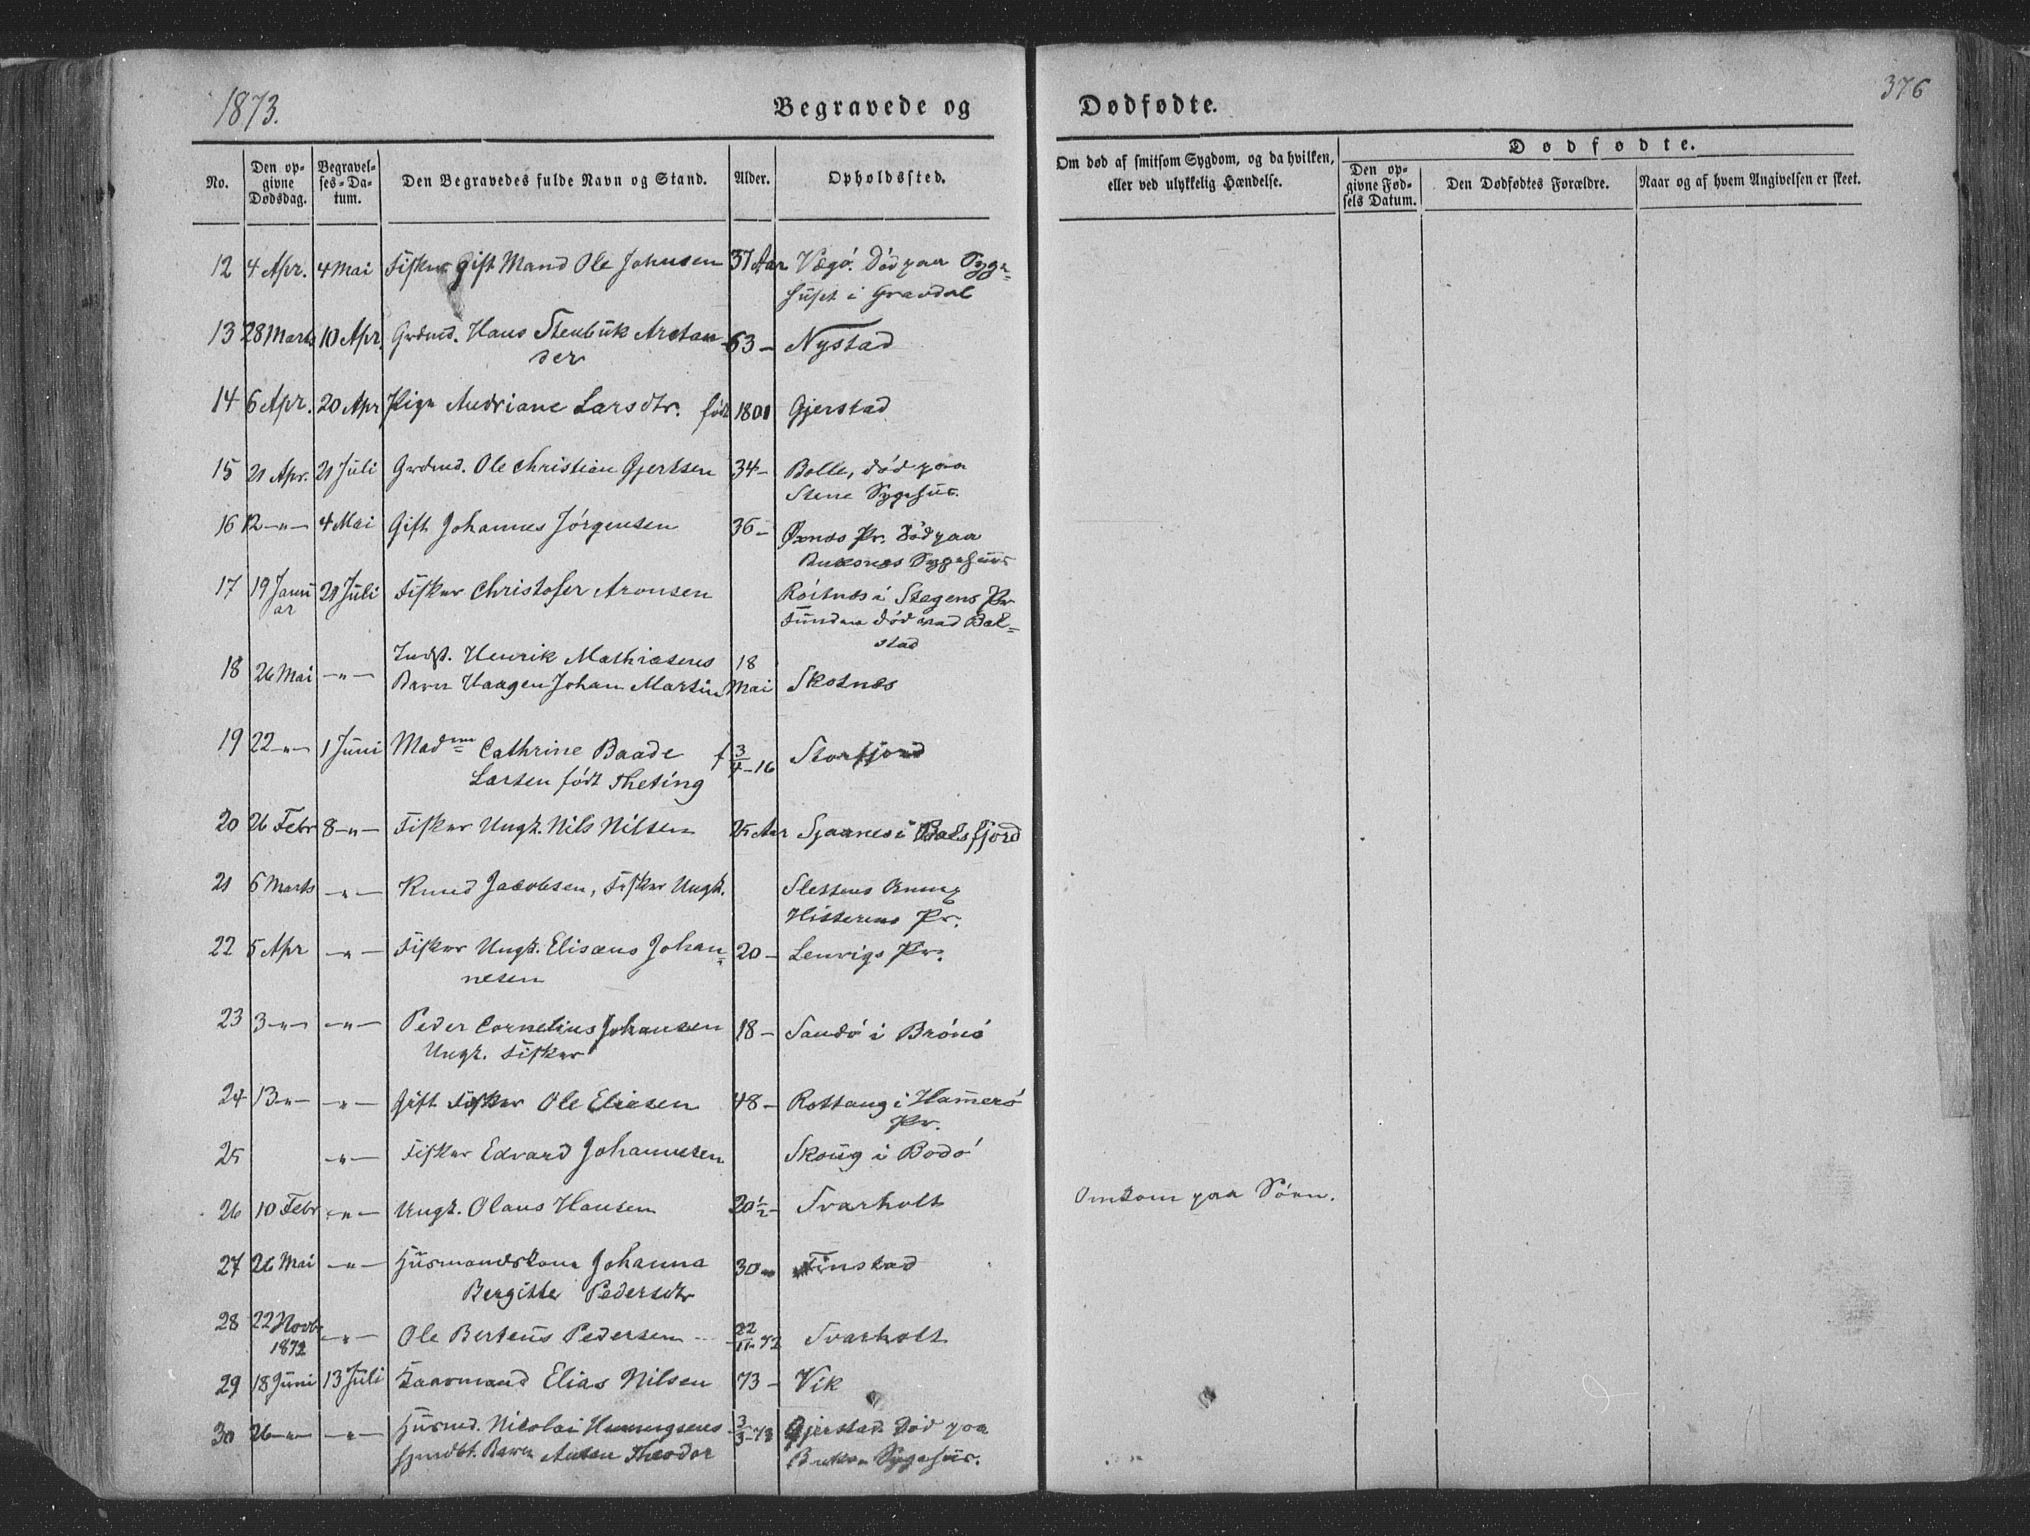 1873.
Begravede og
Dødfødte.
376
No.
Den op-
givne
Dødsdag.
Begravel-
ses-Da-
tum.
Den Begravedes fulde Navn og Stand.
Alder.
Opholdssted.
Om død af smitsom Sygdom, og da hvilken,
eller ved ulykkelig Hændelse.
Dødfødte.
Den op-
givne Fød-
sels Datum.
Den Dødfødtes Forældre.
Naar og af hvem Angivelsen er skeet.
12 4 Apr. 4 Mai Fisker gift Mand Ole Johnsen 37 Aar Vægö. Död paa Syge-
huset i Gravdal
13 28 Marts 10 Apr. Grdmd. Hans Stenbuk Arctan- 63 - Nystad
der
14 6 Apr. 20 Apr Pige Andriane Larsdtr. född 1801 Gjerstad
15 21 Apr. 21 Juli Grdmd. Ole Christian Gjertsen 34 - Bolle, död paa
Stene Sygehus.
16 12 -"- 4 Mai Gift Johannes Jörgensen 36 - Øxnes Pr. Död paa
Buksnes Sygehuus
17 19 Janu 21 Juli Fisker Christofer Aronsen Röitnes i Stegens Pr
ar
Funden död ved Bal-
stad
18 26 Mai -"- Indst. Henrik Mathiasens 18
Barn Haagen Johan Martin Mai Skotnes
19 22 -"- 1 Juni Madme Cathrine Baade f 3/4 - 16 Storfjord
Larsen födt Theting
20 26 Febr 8 -"- Fisker Ungk. Nils Nilsen 25 Aar Sjaanes i Balsfjord
21 6 Marts -"- Knud Jacobsen, Fisker Ungk. Slettens
Hitterens Pr.
22 5 Apr -"- Fisker Ungk. Elisæus Johan- 20 - Lenvigs Pr.
nesen
23 3 -"- -"- Peder Cornelius Johansen 18 - Sandö i Brönö
Ungk. Fisker
24 13 -"- -"- Gift Fisker Ole Eliesen 48 - Rottang i Hammerö
Pr.
25 -"- Fisker Edvard Johannesen Skoug i Bodö
26 10 Febr -"- Ungk. Olaus Hansen 20 1/2 - Svarholt Omkom paa Söen.
27 26 Mai -"- Husmandskone Johanna 30 - Finstad
Bergitte Pedersdtr
28 22 Novb -"- Ole Berteus Pedersen 22/11 - 72 Svarholt
1872
29 18 Juni 13 Juli Kaarmand Elias Nilsen 73 - Vik
30 26 -"- -"- Husmd. Nicolai Henningsens 3/3 - 73 Gjerstad. Död paa
hjmdbt. Barn Anton Theodor Buksn Sygehus.